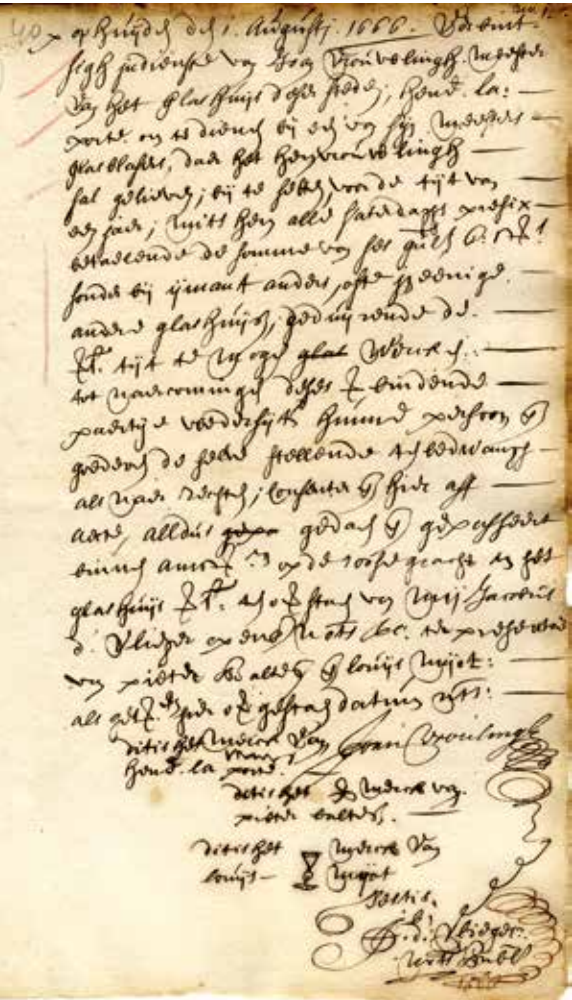 op huijden den 1. Augustj. 1666. Verbint
sigh in dienste van Joan Vrouvelingh. meester
van het glashuijs deser steden, Hend. la:
porte. om te dienen bij een van sijn meesters
glasblasers, daer het hem vrouwelingh
sal gelieven, bij te setten, voor de tijt van
een jaer, mits hem alle saterdaghs prefix
betaelende de somme van ses gulden 6:
sonder bij ijmant anders, ofte in eenige
andere glashuijsen, geduijrende de
tijt te mogen glas Wercken.
tot naercominge deses verbindende
partije wedersijts hunne persoon en
goederen de selve stellende ten bedwangh
als naer rechten, consenteren hier aff
acte, alldus gepa gedaen en gepasseert
binnen op de roose gracht in het
glashuijs ten of staen van mij Jacobus
d. Vlieger openb. Nots. &c. ter presentie
van pieter baltes en louijs mijot:
als get. hier of gestaen datum uts:
dit is het merck van Joan Vroulingh
Hend. la porte.
dit is het merck van
pieter baltes.
dit is het merck Van
louijs mijot
Testis.
J. d. Vlieger.
Nots Publ
1666